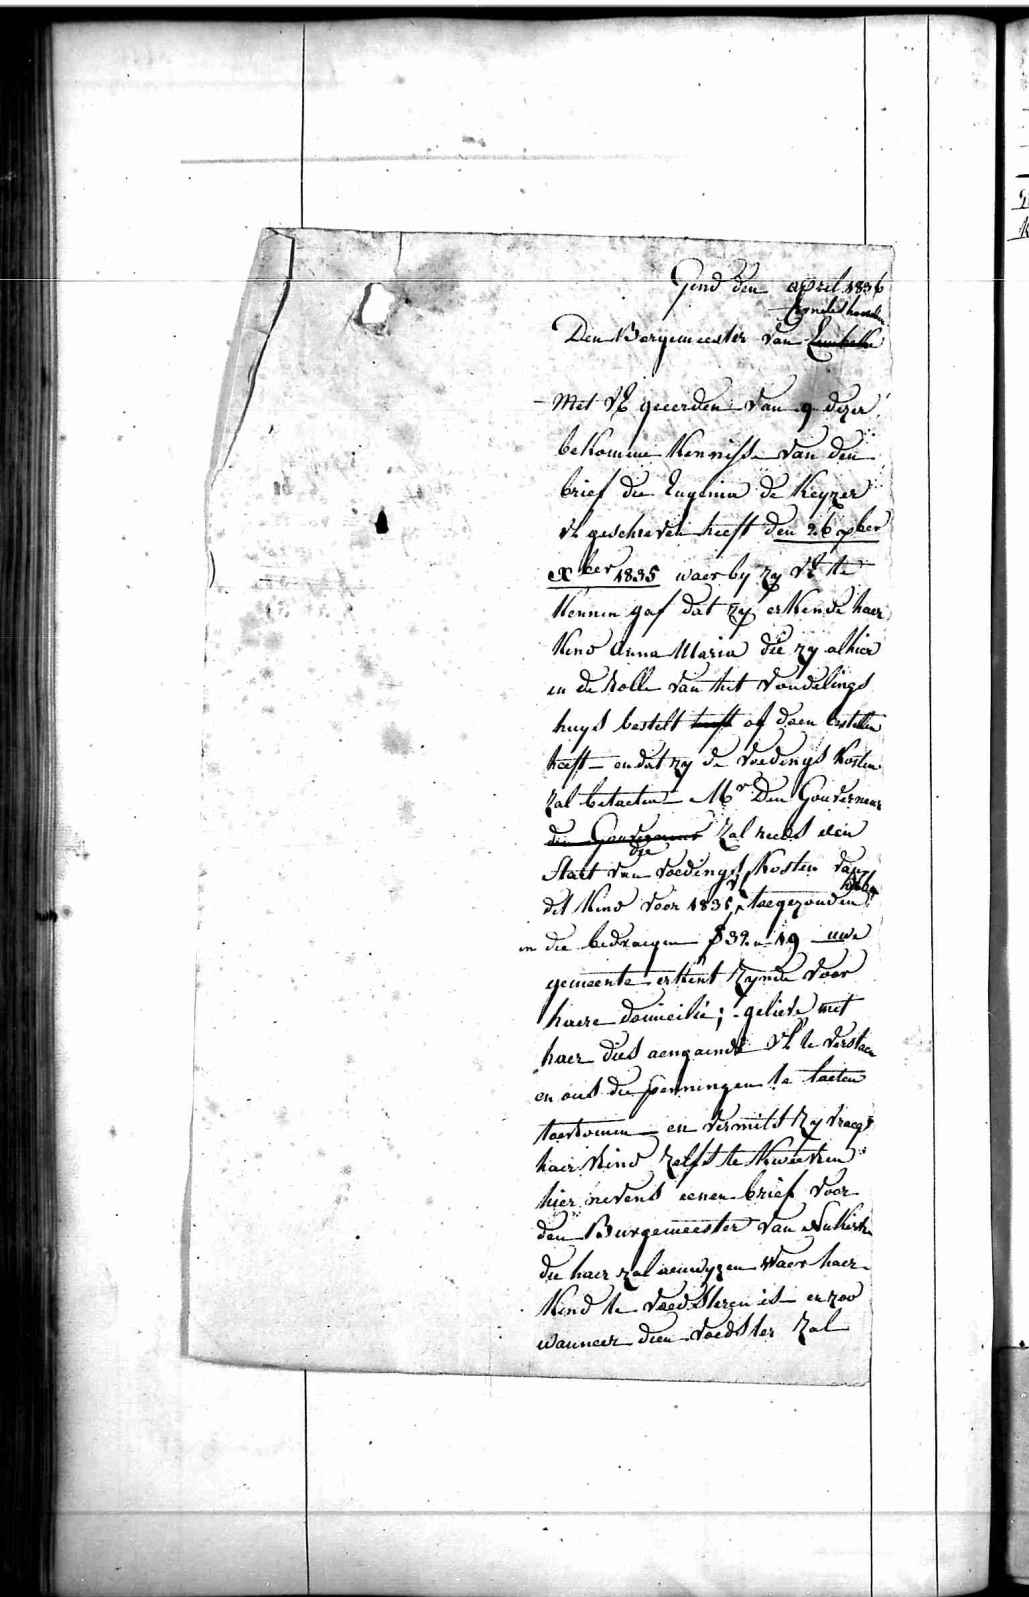 Gend den april 1836
Den Borgemeester van Lembeke
Met UE geeerden van 9 dezer
bekomme Kennisse van den
brief die Eugenia de Keyzer
UE geschreven heeft den 26 xber
xber 1835 waer by zy UE te
Kennen gaf dat zy erkende haer
Kind Anna Maria die zy alhier
in de Rolle van het Vondelings
huys bestelt heeft of doen bestellen
heeft en dat zy de voedings Kosten
zal betaelen Mr Den Gouverneur
den Gouverneur zal reeds eene
Staet van voedings Kosten van
dit Kind voor 1835 toegezonden
hebben
die bedraegen f 32 " 19 uwe
gemeente erkent zynde voor
haere domicilie; gelieve met
haer dies aengaende UE te verstaen
en ons die penningen te laeten
toekomen en vermits zy vraegt
haer Kind zelfs te Kweeken
hier nevens eenen brief voor
den Burgemeester van
die haer zal aenwyzen waer haer
Kind te voedsteren is en zoo
wanneer dien voedster zal